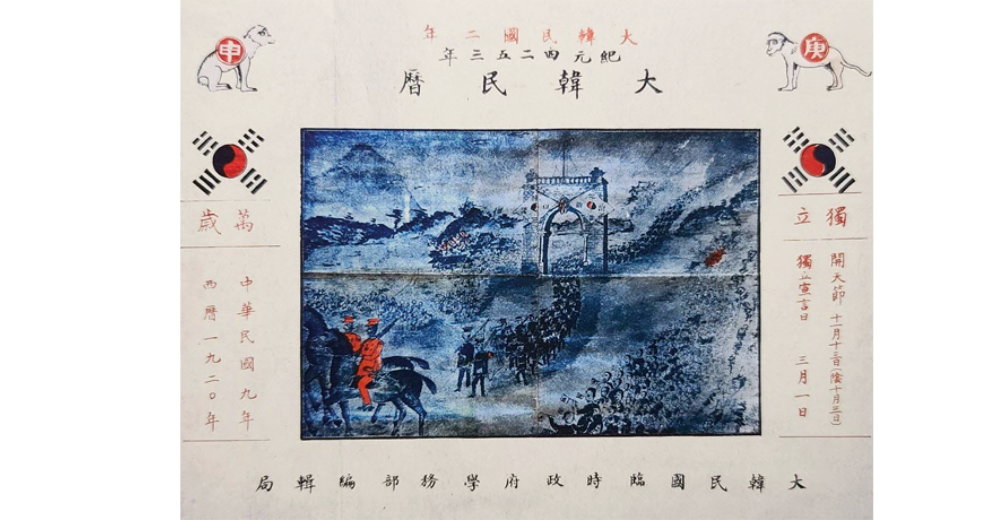 大韓民國二年
紀元四二五三年
大韓民曆
庚
申
獨立
開天節 十一月十三日(陰十月三日)
獨立宣言日 三月一日
萬歲
中華民國九年
西曆一九二〇年
大韓民國臨時政府學務部編輯局